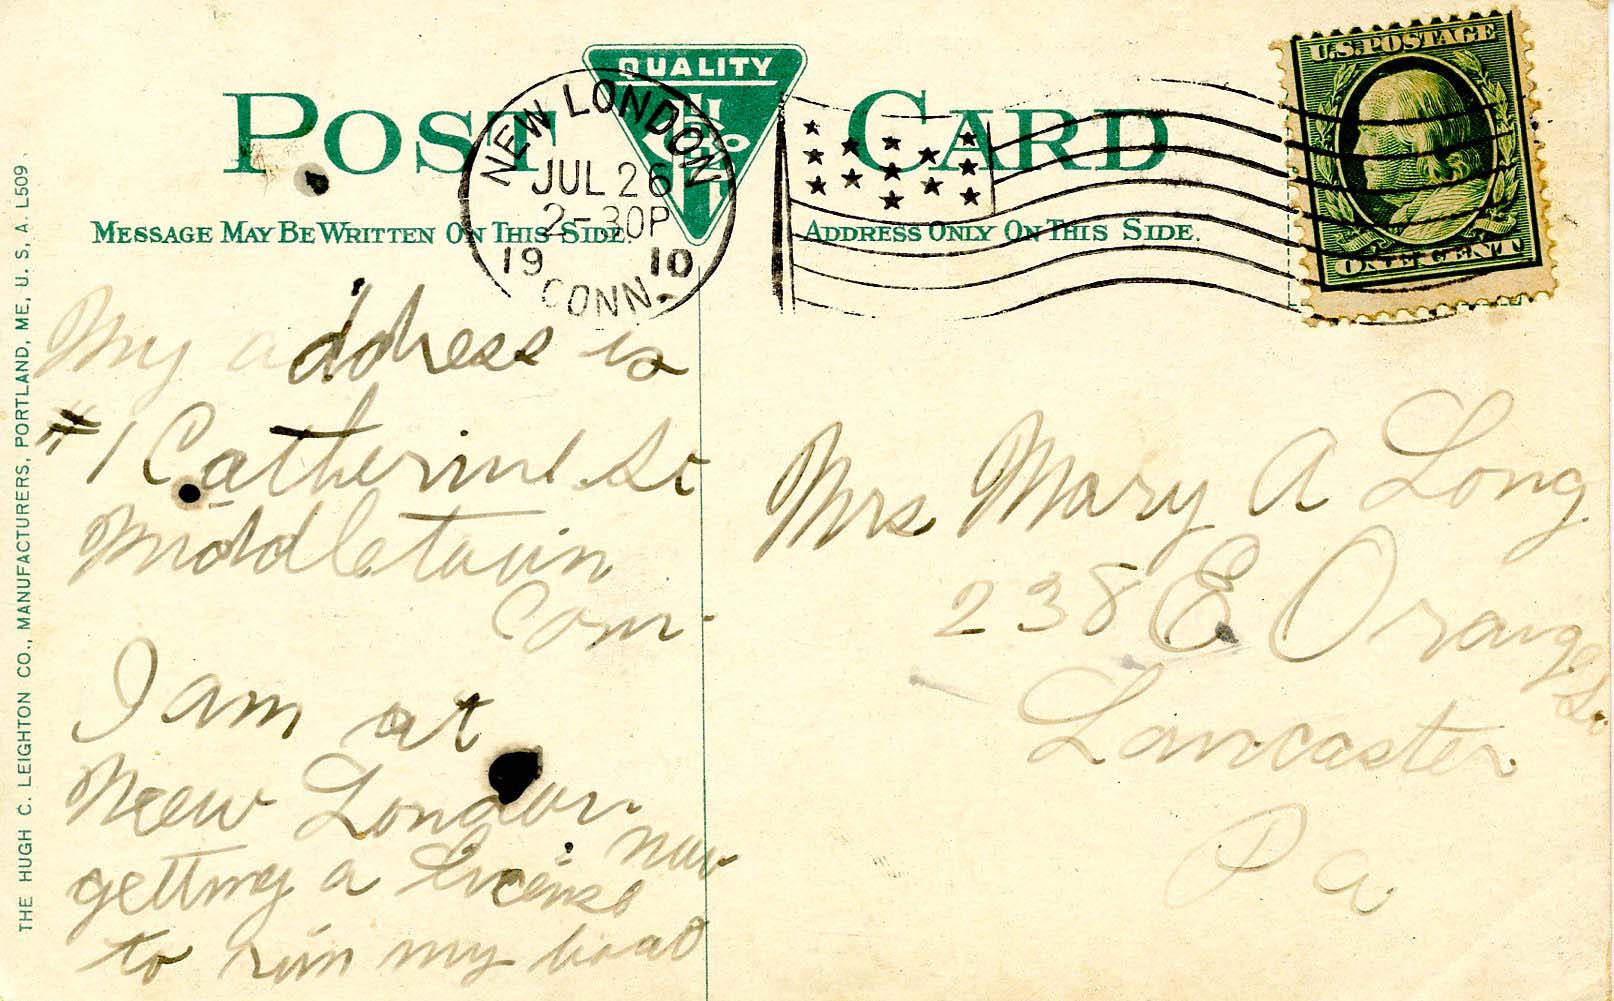 POST CARD
QUALITY
NEW LONDON
JUL 26
2-30P
19 10
CONN.
U.S. POSTAGE
ONE CENT
MESSAGE MAY BE WRITTEN ON THIS SIDE.
ADDRESS ONLY ON THIS SIDE.
THE HUGH C. LEIGHTON CO., MANUFACTURERS, PORTLAND, ME, U. S, A. L509.
My address is
#1 Catherine St
Middletown
Conn.
I am at
New London now
getting a license
to run my boat
Mrs Mary A Long
238 E Orange St.
Lancaster
Pa